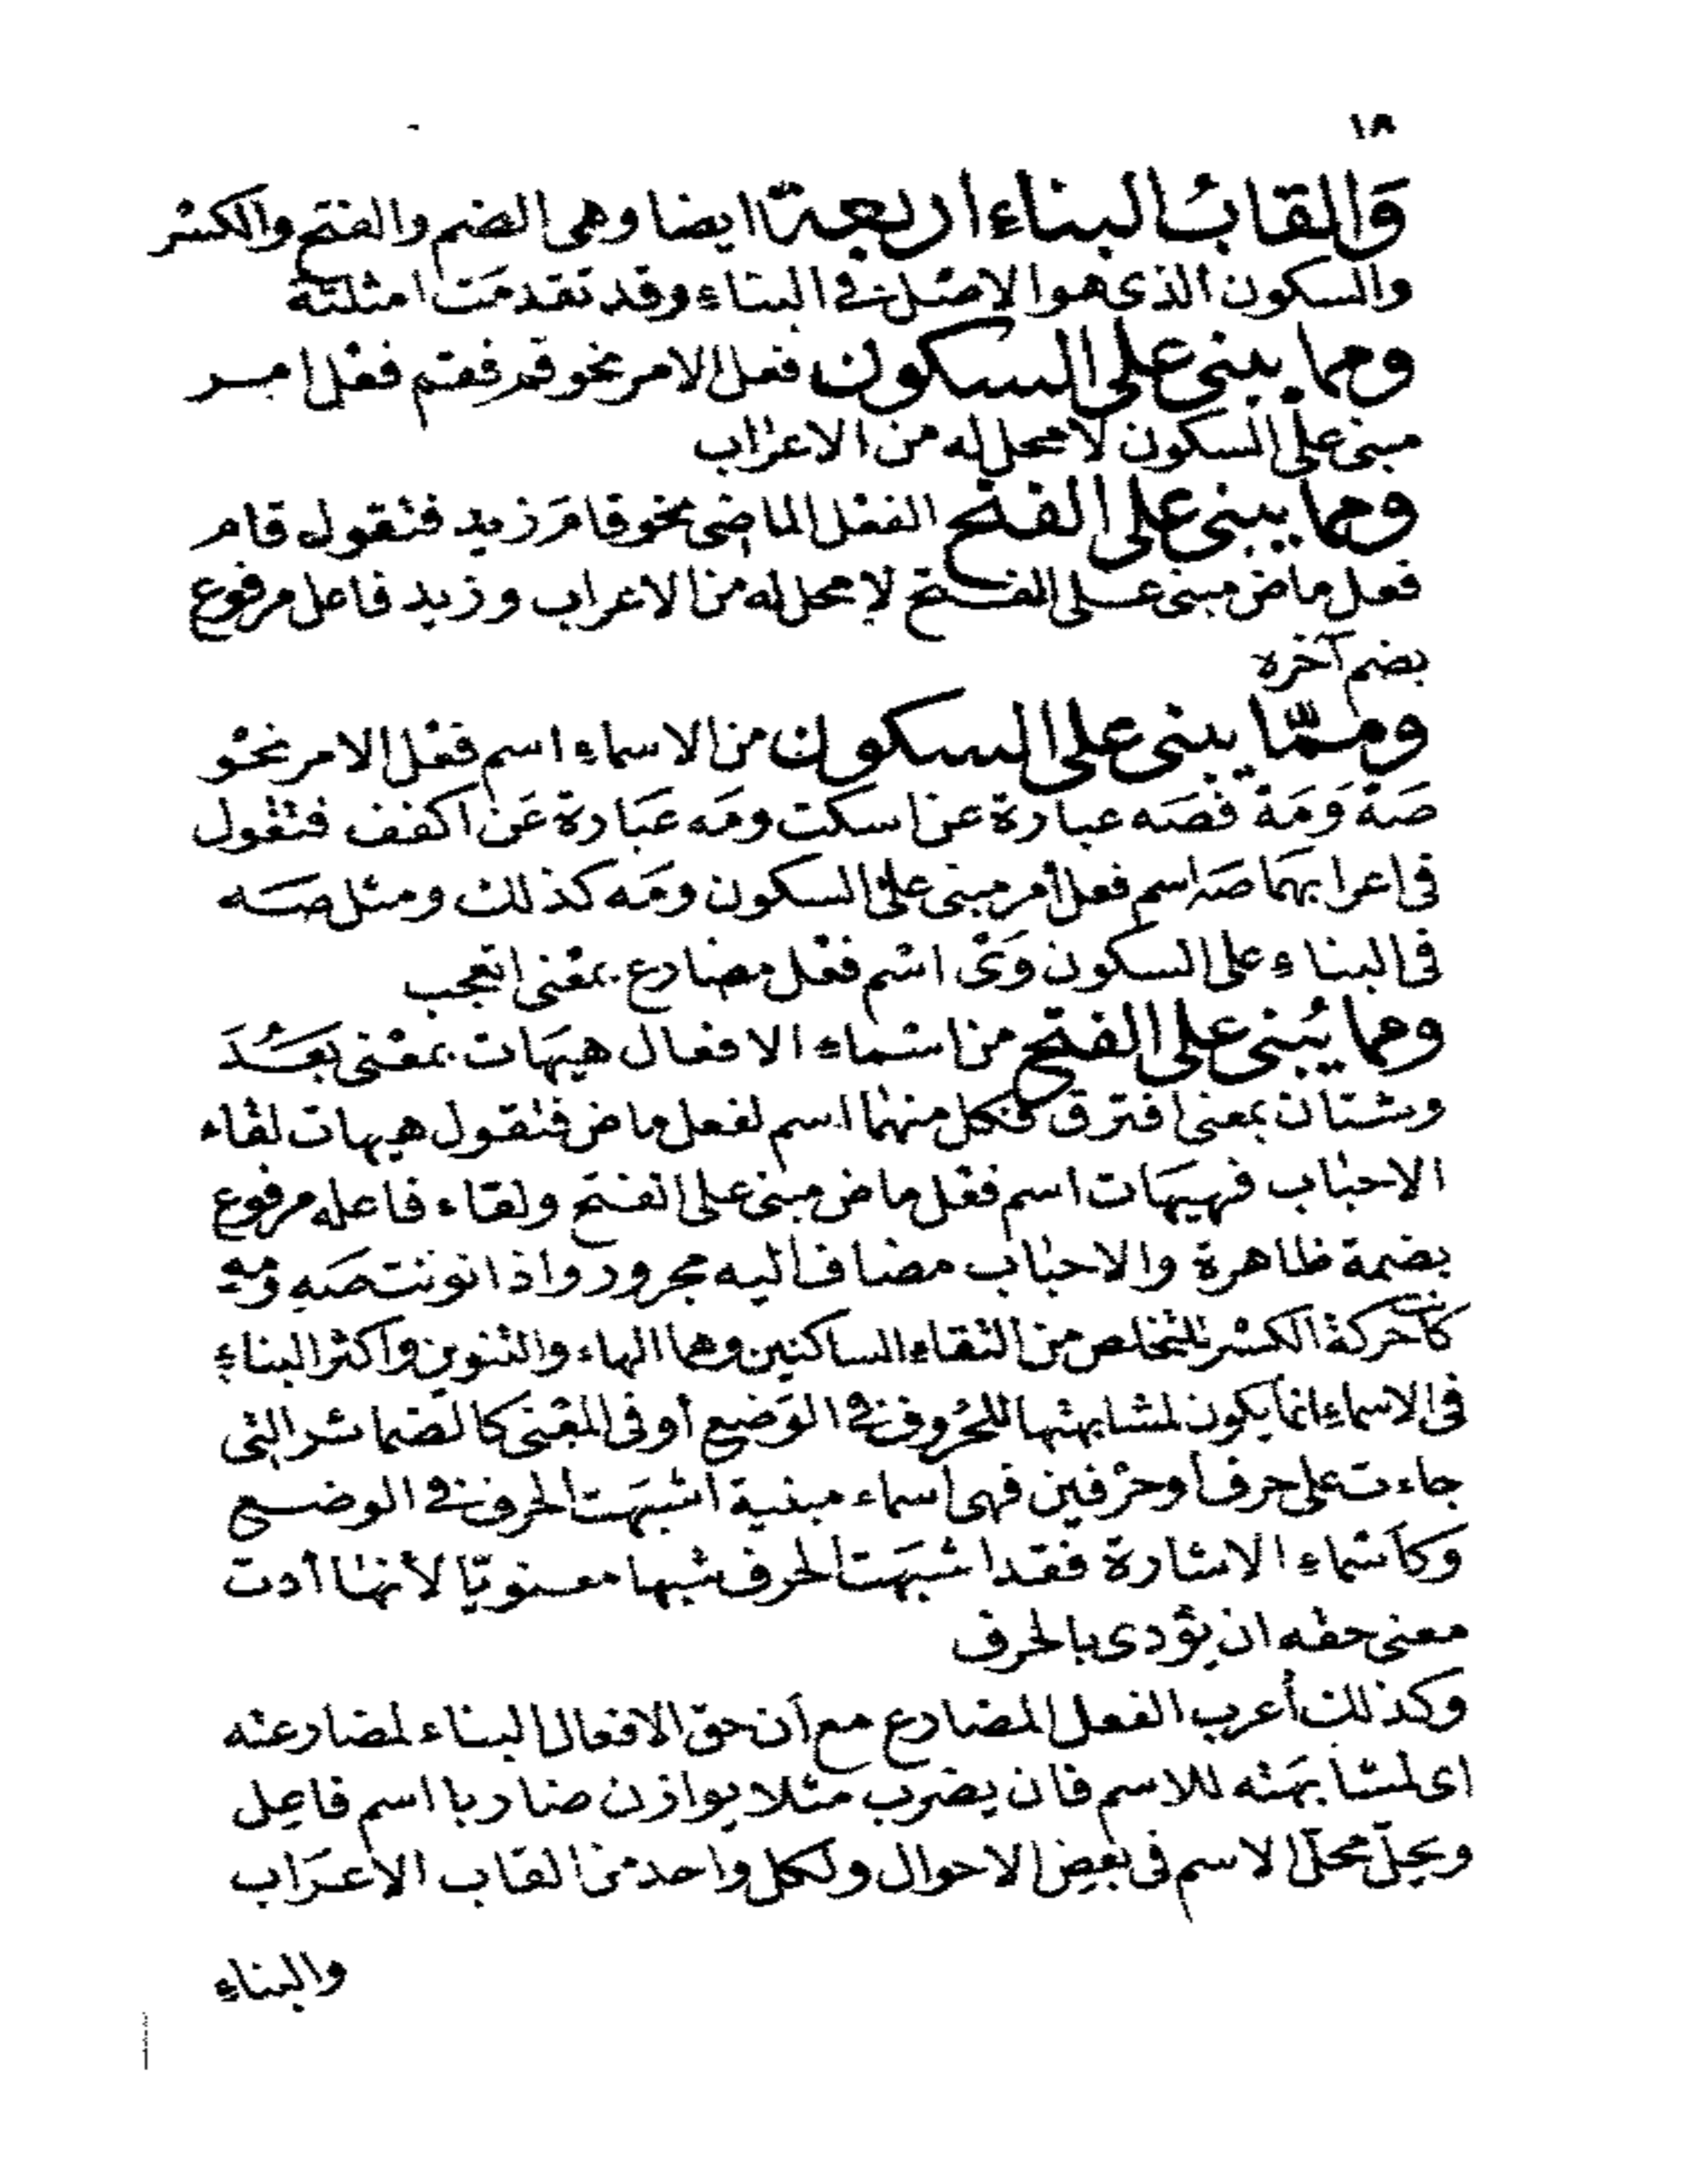 ١٨
وَالقابُ البناء اربعة ايضا وهى الضم والفتح والكسْر
والسكون الذى هو الاصْل فى البناء وقد تقدمَت امثلته
ومما يبنى على السكون فعل الامر نحو قم فقم فعْل امر
مبنى على السكون لا محل له من الاعراب
ومما يبنى على الفتح الفعْل الماضى نحو قامَ زيد فتقول قام
فعل ماض مبنى على الفتح لا محل له من الاعراب وزيد فاعل مرفوع
بضم آخره
وممّا يبنى على السكون من الاسماء اسم فعْل الامر نحْو
صَهْ وَمَهْ فصَه عبارة عن اسكت ومَه عبَارة عَن اكفف فتقول
فى اعرابهمَا صَه اسم فعل أمر مبنى على السكون ومَه كذلك ومثل صَه
فى البناء على السكون وَىْ اسْم فعْل مضارع بمعْنى اتعجب
ومما يُبْنى على الفتح من اسْماء الافعال هيهَات بمعْنى بَعُدَ
وشتان بمعنى افترق فكل منهما اسم لفعل ماض فتقول هيهات لقاء
الاحباب فهيهَات اسم فعْل ماض مبنى على الفتح ولقاء فاعله مرفوع
بضمة ظاهرة والاحباب مضاف اليه مجرور واذا نونت صَهٍ ومهٍ
كانت حركة الكسْر للتخلص من التقاء الساكنين وهما الهاء والتنوين واكثر البناء
فى الاسماء انما يكون لمشابهتها للحُروف فى الوَضع أو فى المعْنى كالضمائر التى
جاءت على حرف أو حرْفين فهى اسماء مبنية اشبهَت الحرف فى الوضع
وكأسْماء الاشارة فقد اشبَهَت الحرف شبها معنويّا لأنها أدت
معنى حقه ان يؤدى بالحرف
وكذلك أعرب الفعل المضارع مع أن حق الافعال البناء لمضارعته
اى لمشابهَته للاسم فان يضرب مثلا يوازن ضاربا اسم فاعِل
ويحِلّ محلّ الاسم فى بعض الاحوال ولكل واحد من القاب الاعرَاب
والبناء